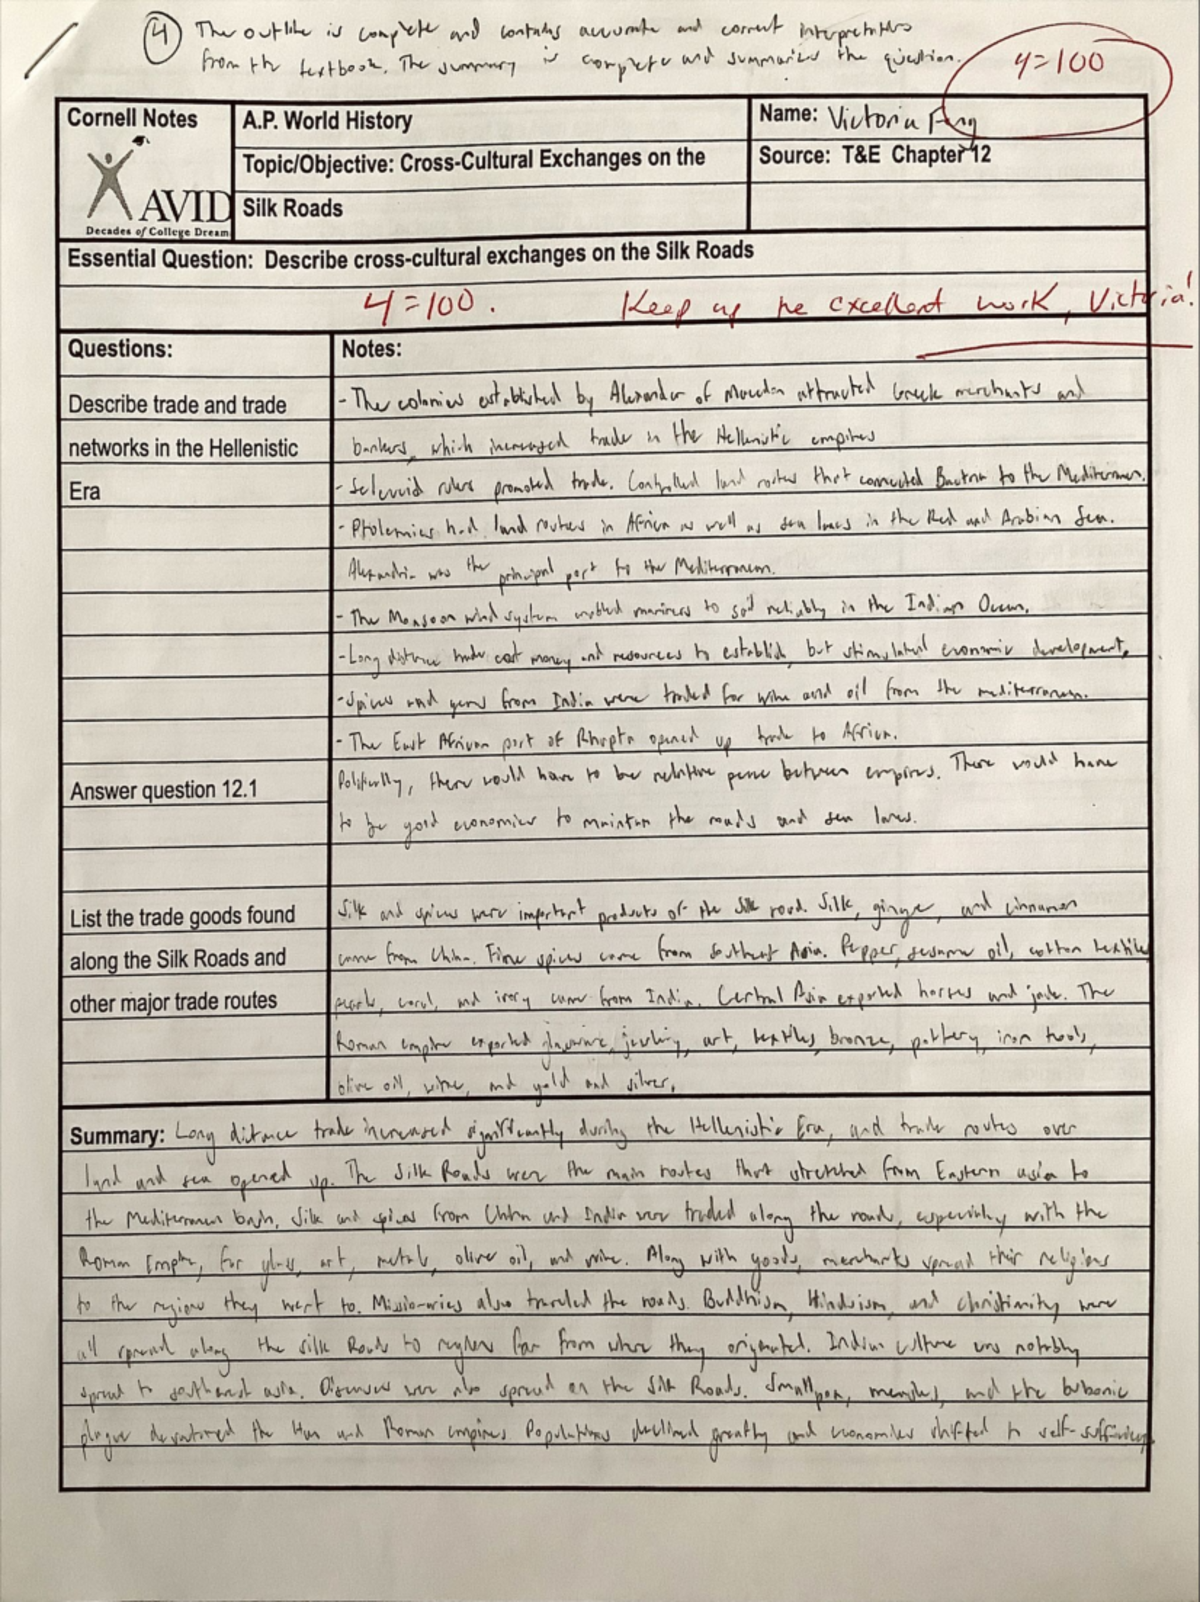 ④ The outline is complete and contains accurate and correct interpretations
from the textbook. The summary is complete and summarizes the question.
4=100
Cornell Notes
AVID
Decades of College Dreams
A.P. World History
Topic/Objective: Cross-Cultural Exchanges on the
Silk Roads
Name: Victoria Feng
Source: T&E Chapter 12
Essential Question: Describe cross-cultural exchanges on the Silk Roads
4=100. Keep up the excellent work, Victoria!
Questions:
Notes:
Describe trade and trade
networks in the Hellenistic
Era
- The colonies established by Alexander of Macedon attracted Greek merchants and
bankers, which increased trade in the Hellenistic empires
- Seleucid rulers promoted trade. Controlled land routes that connected Bactria to the Mediterranean.
- Ptolemies had land routes in Africa as well as sea lanes in the Red and Arabian Sea.
Alexandria was the principal port to the Mediterranean.
- The Monsoon wind system enabled mariners to sail reliably in the Indian Ocean.
- Long distance trade cost money and resources to establish, but stimulated economic development.
- Spices and gems from India were traded for wine and oil from the mediterranean.
- The East African port of Rhapta opened up trade to Africa.
Answer question 12.1
Politically, there would have to be relative peace between empires. There would have
to be good economies to maintain the roads and sea lanes.
List the trade goods found
along the Silk Roads and
other major trade routes
Silk and spices were important products of the Silk road. Silk, ginger, and cinnamon
came from China. Fine spices came from Southeast Asia. Pepper, sesame oil, cotton textiles
pearls, coral, and ivory came from India. Central Asia exported horses and jade. The
Roman empire exported glassware, jewelry, art, textiles, bronze, pottery, iron tools,
olive oil, wine, and gold and silver.
Summary: Long distance trade increased significantly during the Hellenistic Era, and trade routes over
land and sea opened up. The Silk Roads were the main routes that stretched from Eastern asia to
the Mediterranean basin. Silk and spices from China and India were traded along the roads, especially with the
Roman Empire, for glass, art, metals, olive oil, and wine. Along with goods, merchants spread their religions
to the regions they went to. Missionaries also traveled the roads. Buddhism, Hinduism, and christianity were
all spread along the silk Roads to regions far from where they originated. Indian culture was notably
spread to southeast asia. Diseases were also spread on the Silk Roads. Smallpox, measles, and the bubonic
plague devastated the Han and Roman empires. Populations declined greatly and economies shifted to self-sufficiency.